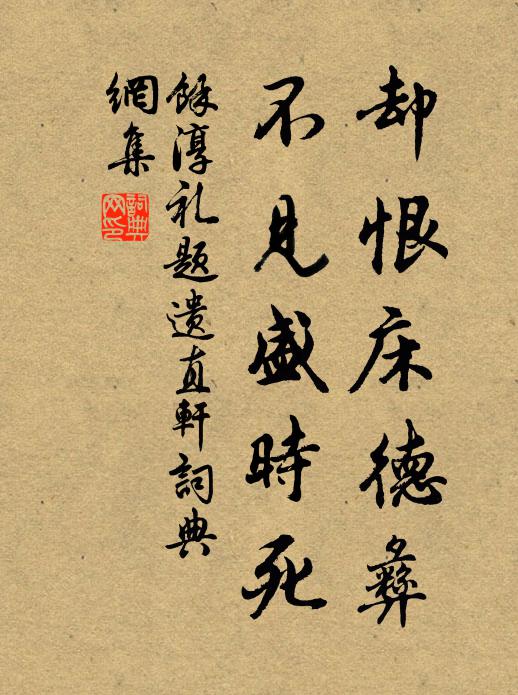 却恨床德彝
不见盛時死
餘淳礼题遗直軒詞典
網集
詞典网印